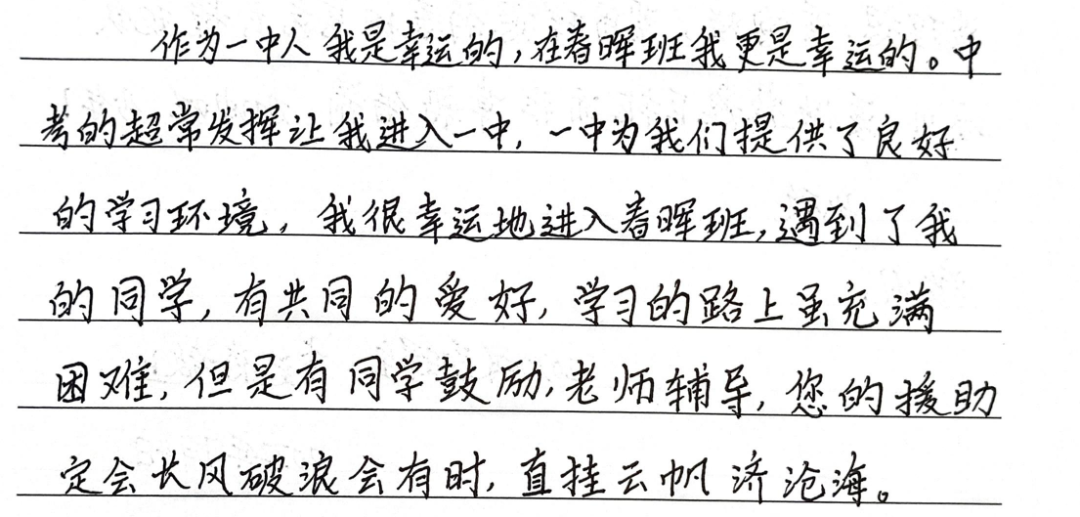 作为一中人我是幸运的,在春晖班我更是幸运的。中
考的超常发挥让我进入一中,一中为我们提供了良好
的学习环境,我很幸运地进入春晖班,遇到了我
的同学,有共同的爱好,学习的路上虽充满
困难,但是有同学鼓励,老师辅导,您的援助
定会长风破浪会有时,直挂云帆济沧海。